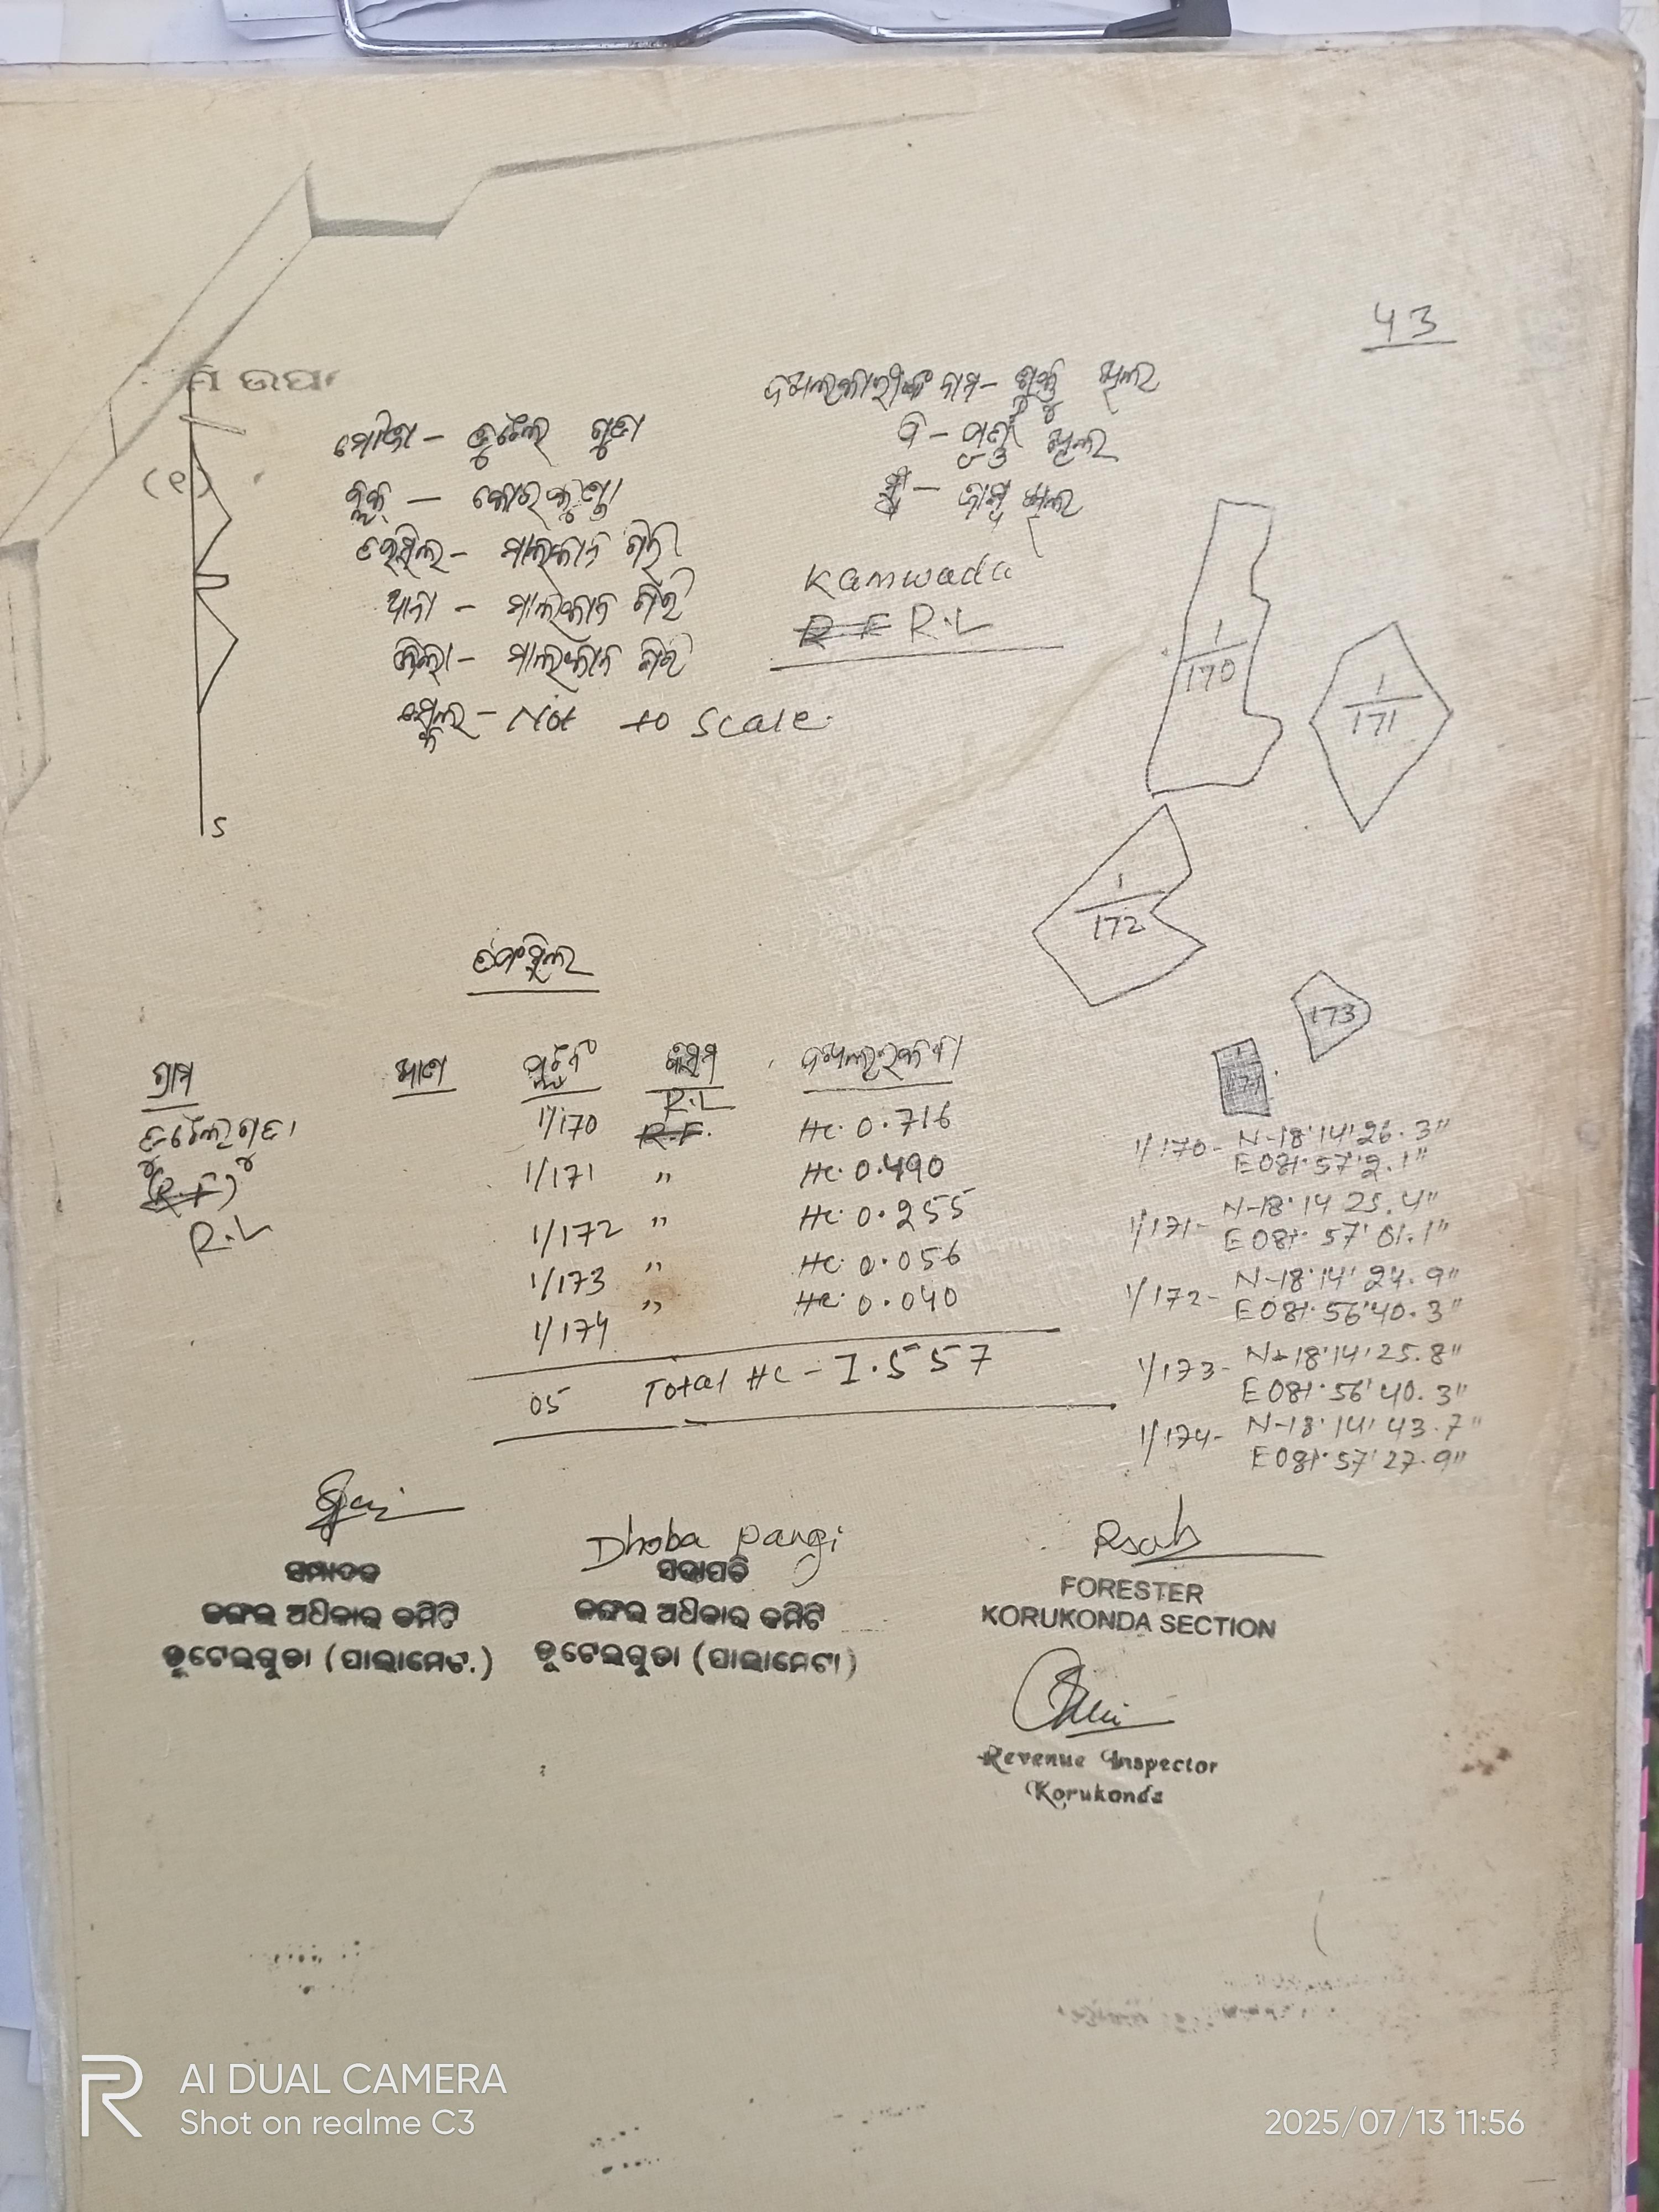 43
ମି ଉପ
ମୌଜା – ଡୁଟେଲ ଗୁଡା
ବ୍ଲକ୍ – କୋରକୁଣ୍ଡା
ତହସିଲ – ମାଲକାନ ଗିରି
ଥାନା – ମାଲକାନ ଗିରି
ଜିଲ୍ଲା – ମାଲକାନ ଗିରି
ସ୍କେଲ – Not to Scale
(୧)
S
ଦଖଲକାରୀଙ୍କ ନାମ –
Kamwada
R.F R.L
1/170
1/171
1/172
173
ତଫସିଲ
ଗ୍ରାମ ଖାତା ପ୍ଲଟ ନଂ କିସମ ଦଖଲ ରକବା
ଡୁଟେଲଗୁଡା 1/170 R.L R.F. Hc. 0.716
(R.F) 1/171 " Hc. 0.490
R.L 1/172 " Hc. 0.255
1/173 " Hc. 0.056
1/174 " Hc. 0.040
05 Total Hc – 1.557
1/170- N-18°14'26.3"
E081°57'2.1"
1/171- N-18°14 25.4"
E081° 57' 01.1"
1/172- N-18°14' 24.9"
E081°56'40.3"
1/173- N-18°14'25.8"
E081°56'40.3"
1/174- N-18°14' 43.7"
E081°57'27.9"
ସମ୍ପାଦକ
ଜଙ୍ଗଲ ଅଧିକାର କମିଟି
ଡୁଟେଲଗୁଡା (ପାଲାମେଟା)
Dhoba pangi
ସଭାପତି
ଜଙ୍ଗଲ ଅଧିକାର କମିଟି
ଡୁଟେଲଗୁଡା (ପାଲାମେଟା)
FORESTER
KORUKONDA SECTION
Revenue Inspector
Korukonda
AI DUAL CAMERA
Shot on realme C3
2025/07/13 11:56